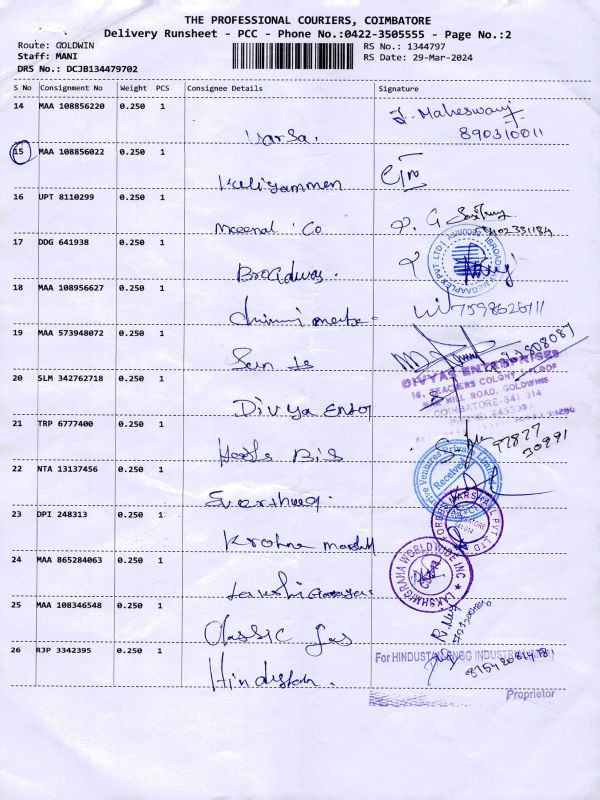 THE PROFESSIONAL COURIERS, COIMBATORE
Delivery Runsheet - PCC - Phone No.:0422-3505555 - Page No.:2
Route: GOLDWIN
RS No.: 1344797
Staff: MANI
RS Date: 29-Mar-2024
DRS No.: DCJB134479702
S No Consignment No Weight PCS Consignee Details Signature
14 MAA 108856220 0.250 1
Varsa. J. Maheswari
890310011
15 MAA 108856022 0.250 1
Kaliyammen
16 UPT 8110299 0.250 1
Meenal Co
17 DDG 641938 0.250 1
Broadways.
18 MAA 108956627 0.250 1
7598626711
19 MAA 573948072 0.250 1
20 SLM 342762718 0.250 1
Divya Enter
DIVYAS ENTERPRISES
TEACHERS COLONY
MILL ROAD, GOLDWINS
COIMBATORE-641 014
21 TRP 6777400 0.250 1
97877
30991
22 NTA 13137456 0.250 1
Ventures Private Limited
Received
23 DPI 248313 0.250 1
Krohne Marshall
MARSHALL PVT. LTD
24 MAA 865284063 0.250 1
LAKSHMIGRAHA WORLDWIDE INC
25 MAA 108346548 0.250 1
Classic Gas
26 RJP 3342395 0.250 1
Hindustan.
For HINDUSTAN ENGG INDUSTRIES
Proprietor